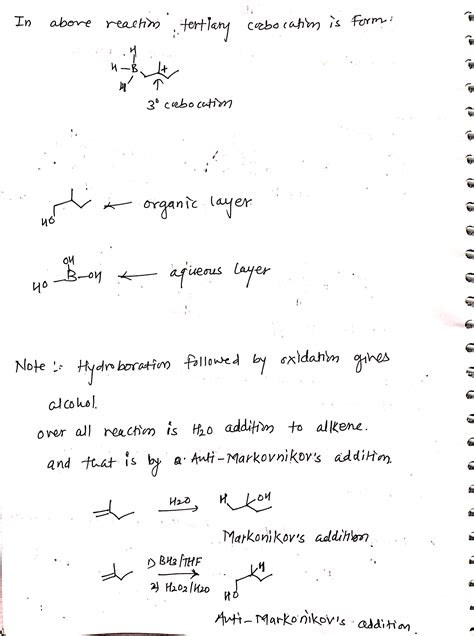 In above reaction, tertiary carbocation is form:
H
H-B +
H
3° carbocation
HO ← organic layer
OH
HO B-OH ← aqueous layer
Note :- Hydroboration followed by oxidation gives
alcohol.
over all reaction is H2O addition to alkene.
and that is by a Anti-Markovnikov's addition
H2O H OH
Markonikov's addition.
1) BH3/THF H
2) H2O2/H2O HO
Anti-Markonikov's addition.